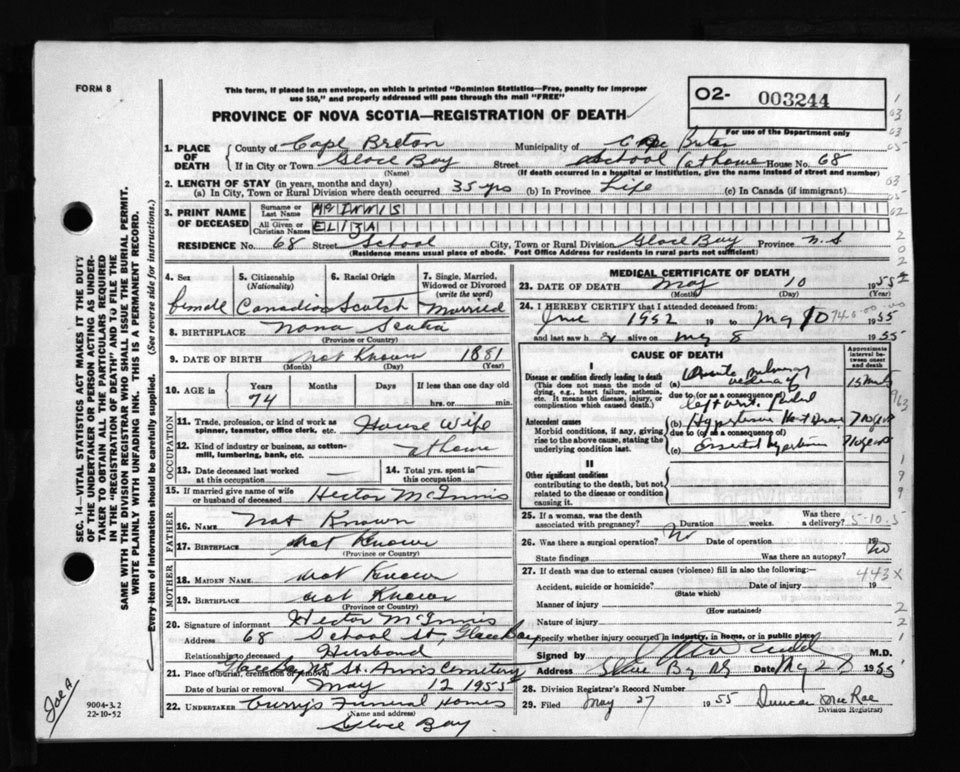 FORM 8
This form, if placed in an envelope, on which is printed "Dominion Statistics—Free, penalty for improper
use $50," and properly addressed will pass through the mail "FREE"
PROVINCE OF NOVA SCOTIA—REGISTRATION OF DEATH
02- 003244
For use of the Department only
1. PLACE OF DEATH
County of Cape Breton Municipality of Cape Breton
If in City or Town Glace Bay Street School (at home House No. 68
(Name) (If death occurred in a hospital or institution, give the name instead of street and number)
2. LENGTH OF STAY (in years, months and days)
(a) In City, Town or Rural Division where death occurred 35 yrs (b) In Province Life (c) In Canada (if immigrant)
3. PRINT NAME OF DECEASED
Surname or Last Name McINNIS
All Given or Christian Names ELIZA
RESIDENCE No. 68 Street School City, Town or Rural Division Glace Bay Province N.S
(Residence means usual place of abode. Post Office Address for residents in rural parts not sufficient)
4. Sex
female
5. Citizenship
(Nationality)
Canadian
6. Racial Origin
Scotch
7. Single, Married, Widowed or Divorced
(write the word)
Married
8. BIRTHPLACE Nova Scotia
(Province or Country)
9. DATE OF BIRTH Not Known 1881
(Month) (Day) (Year)
10. AGE in Years Months Days If less than one day old
74 hrs. or min.
OCCUPATION
11. Trade, profession, or kind of work as
spinner, teamster, office clerk, etc. House Wife
12. Kind of industry or business, as cotton-
mill, lumbering, bank, etc. at home
13. Date deceased last worked
at this occupation —
14. Total yrs. spent in
this occupation —
15. If married give name of wife
or husband of deceased Hector McInnis
FATHER
16. NAME Not Known
17. BIRTHPLACE Not Known
(Province or Country)
MOTHER
18. MAIDEN NAME Not Known
19. BIRTHPLACE Not Known
(Province or Country)
20. Signature of informant Hector McInnis
Address 68 School St, Glace Bay
Relationship to deceased Husband
21. Place of burial, cremation or removal Glace Bay NS St. Anns Cemetery
Date of burial or removal May 12 1955
22. UNDERTAKER Curry's Funeral Homes
(Name and address)
Glace Bay
MEDICAL CERTIFICATE OF DEATH
23. DATE OF DEATH May 10 1955
(Month) (Day) (Year)
24. I HEREBY CERTIFY that I attended deceased from:
June 1952 19 to May 10 1955
and last saw h alive on May 8 1955
CAUSE OF DEATH
Approximate interval between onset and death
I
Disease or condition directly leading to death
(This does not mean the mode of
dying, e.g., heart failure, asthenia,
etc. It means the disease, injury, or
complication which caused death.)
(a) Acute pulmonary
due to (or as a consequence of)
left vent.
Antecedent causes
Morbid conditions, if any, giving
rise to the above cause, stating the
underlying condition last.
(b) Hypertensive Heart
due to (or as a consequence of)
(c) Essential
II
Other significant conditions
contributing to the death, but not
related to the disease or condition
causing it.
25. If a woman, was the death
associated with pregnancy? Duration weeks. Was there a delivery?
5-10.5
26. Was there a surgical operation? No Date of operation 19
State findings Was there an autopsy? No
27. If death was due to external causes (violence) fill in also the following: 443X
Accident, suicide or homicide? Date of injury 19
(State which)
Manner of injury
(How sustained)
Nature of injury
Specify whether injury occurred in industry, in home, or in public place
Signed by M.D.
Address Glace Bay NS Date May 28 1955
28. Division Registrar's Record Number
29. Filed May 27 1955 Duncan MacRae
Division Registrar
SEC. 14—VITAL STATISTICS ACT MAKES IT THE DUTY
OF THE UNDERTAKER OR PERSON ACTING AS UNDER-
TAKER TO OBTAIN ALL THE PARTICULARS REQUIRED
IN THE "REGISTRATION OF DEATH" AND TO FILE THE
SAME WITH THE DIVISION REGISTRAR WHO SHALL ISSUE THE BURIAL PERMIT.
WRITE PLAINLY WITH UNFADING INK. THIS IS A PERMANENT RECORD.
Every item of information should be carefully supplied. (See reverse side for instructions.)
9004-3.2
22-10-52